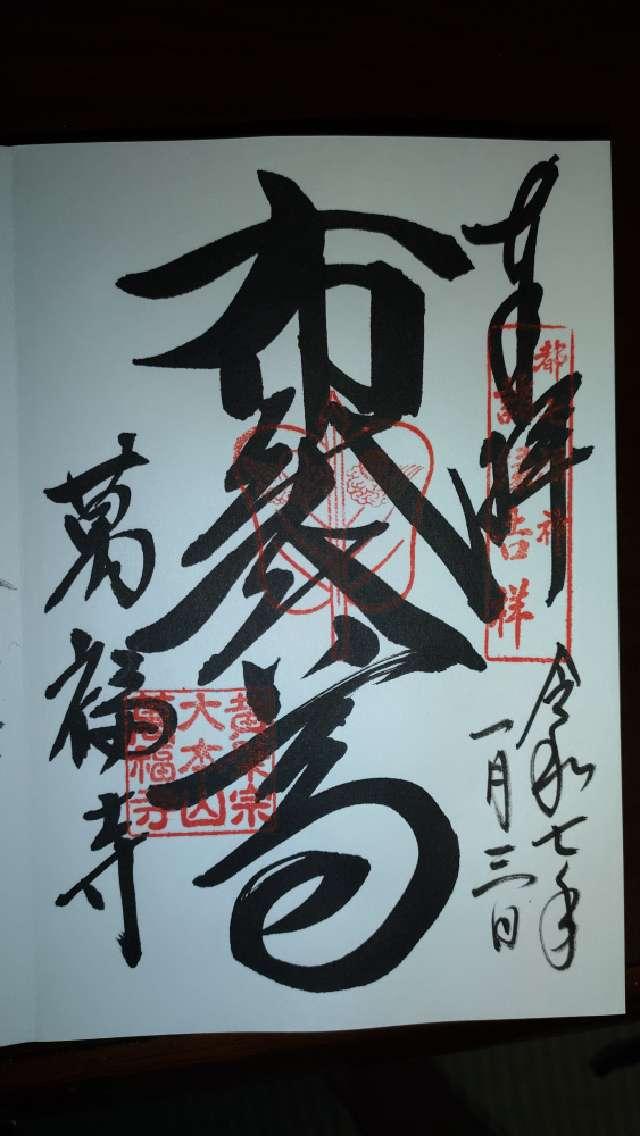 吉祥
令和七年
一月三日
布袋尊
萬福寺
黄檗宗
大本山
萬福寺